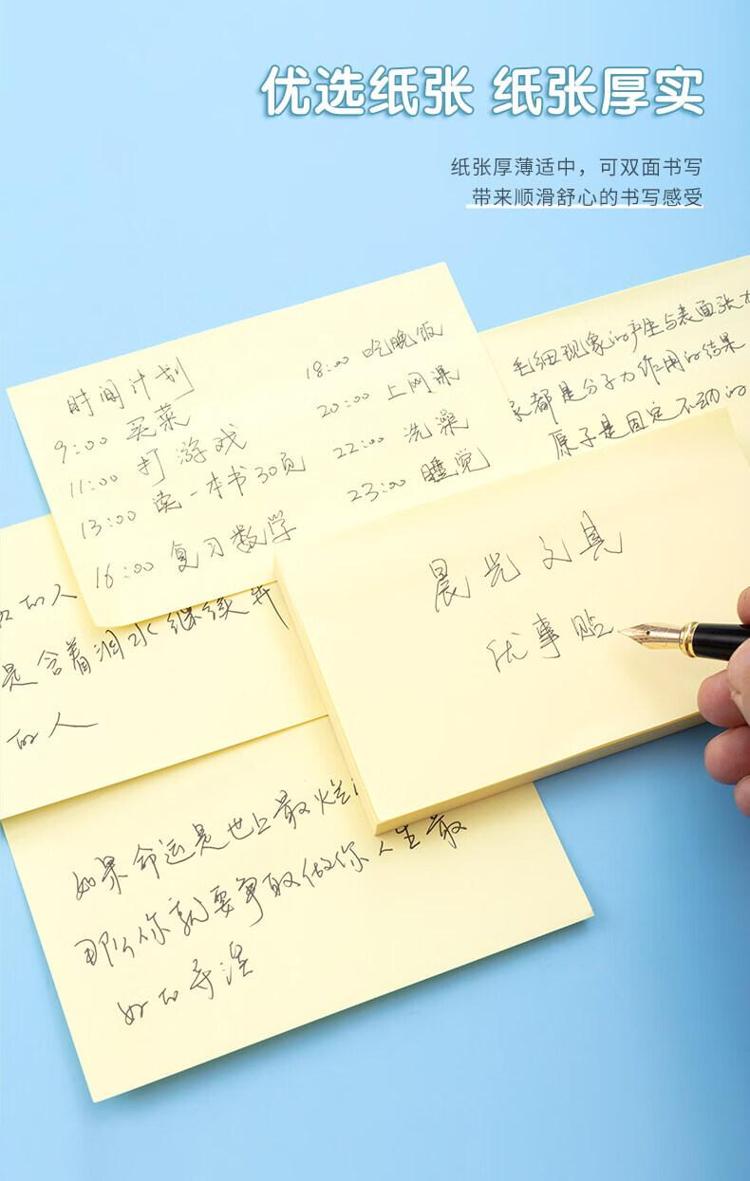 优选纸张 纸张厚实
纸张厚薄适中，可双面书写
带来顺滑舒心的书写感受
时间计划
9:00 买菜
11:00 打游戏
13:00 读一本书30页
16:00 复习数学
18:00 吃晚饭
20:00 上网课
22:00 洗澡
23:00 睡觉
毛细现象的产生与表面张
都是分子力作用的结果
原子是固定不动的
晨光文具
优事贴
的人
是含着泪水继续
的人
如果命运是世上最
那么你就要争取做你人生最
好的导演